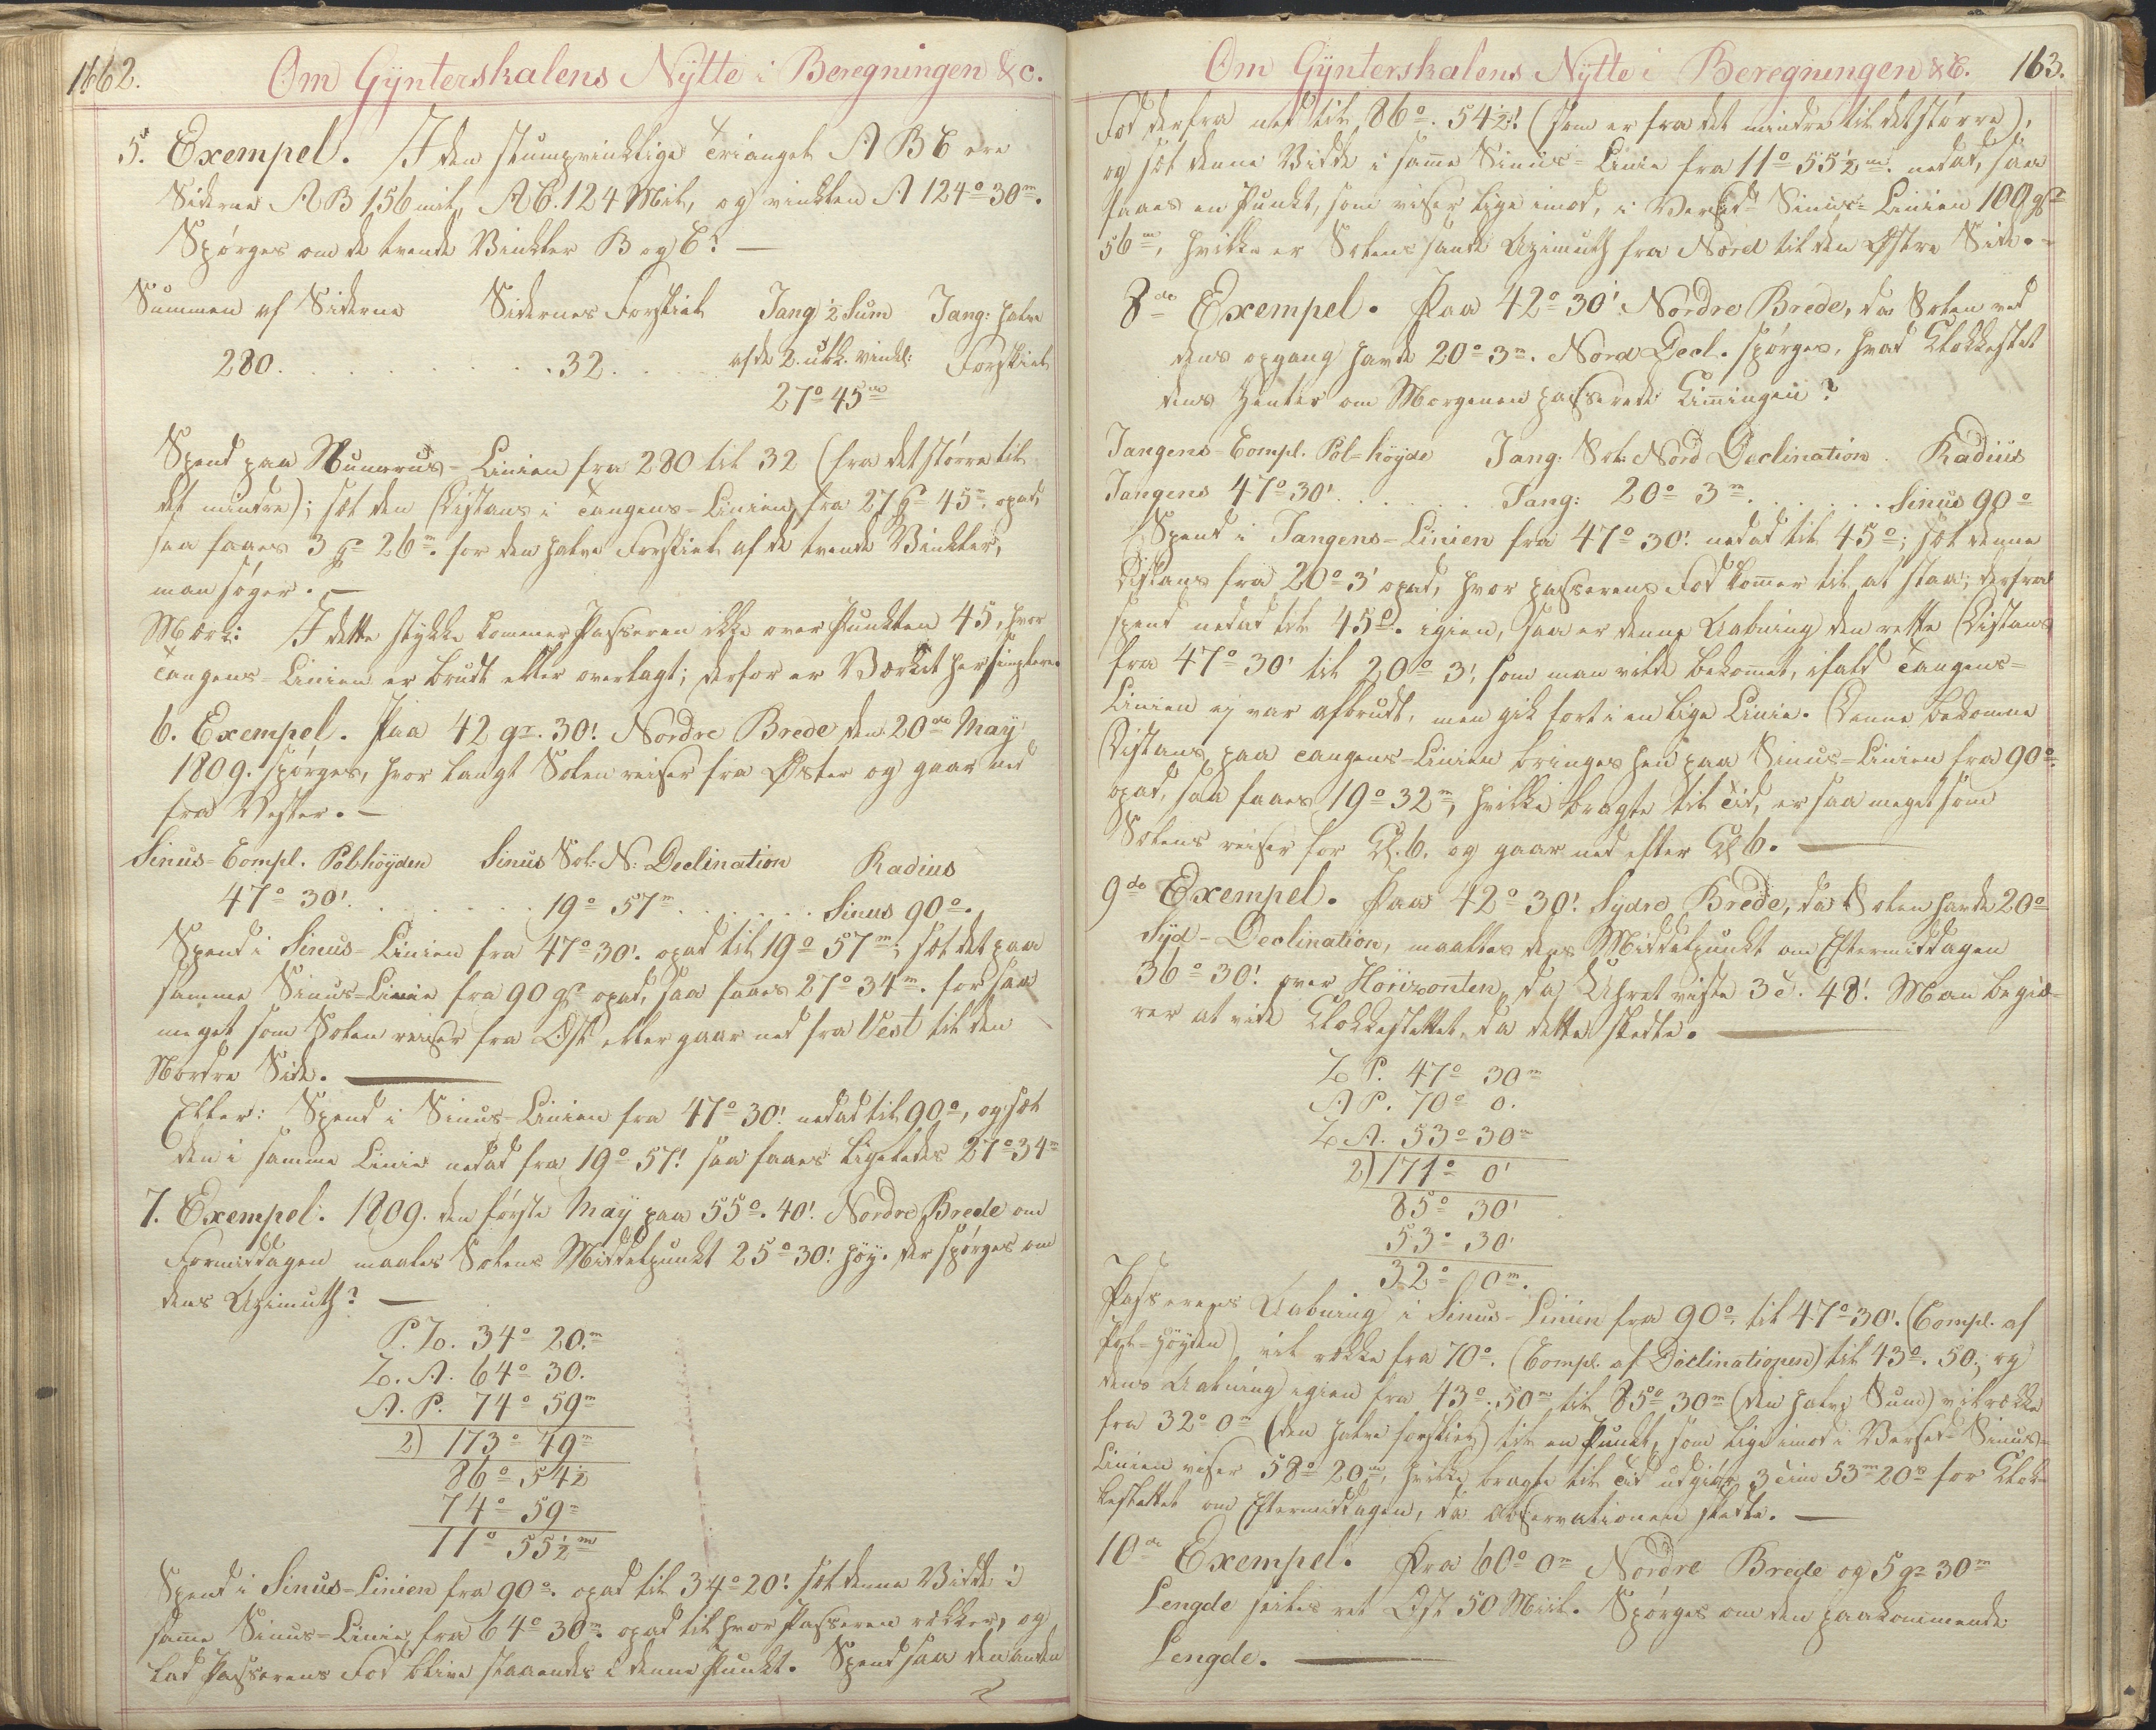 1662.
Om Gÿnterskalens Nÿtte i Beregningen &c.
5. Exempel. I den stumpvinklige Triangel A B C ere
Siderne AB 156 mil, AC. 124 Mil, og vinklen A 124° 30m.
Spörges om de tvende Vinkler B og C? —
Summen af Siderne Sidernes Forskiel Tang: ½ Sum Tang: halve
280. . . . . . . . . . . 32. . . . . af de 2. ubk. vinkl: Forskiel
27° 45m
Spend paa Numerus-Linien fra 280 til 32 (fra det större til
det mindre); sæt den Distans i Tangens-Linien fra 27 gr 45m. opad,
saa faaes 3 gr 26m. for den halve Forskiel af de tvende Vinkler,
man söger. —
Mærk: I dette stykke kommer Passeren ikke over Punkten 45, hvor
Tangens-Linien er brudt eller overlagt; derfor er Værket her simplere.
6. Exempel. Paa 42 gr. 30'. Nordre Brede den 20de Maÿ
1809. spörges, hvor langt Solen reiser fra Öster og gaar ned
fra Vester. —
Sinus-Compl. Polhöyden Sinus Sol: N: Declination Radius
47° 30'. . . . . . . 19° 57m. . . . . . Sinus 90°.
Spend i Sinus-Linien fra 47° 30'. opad til 19° 57m; sæt det paa
samme Sinus-Linie fra 90 gr opad, saa faaes 27° 34m. for saa
meget som Solen reiser fra Öst eller gaar ned fra Vest til den
Nordre Side. —
Eller: Spend i Sinus-Linien fra 47° 30'. nedad til 90°, og sæt
den i samme Linie nedad fra 19° 57'. saa faaes ligeledes 27° 34m
7. Exempel. 1809. den förste Maÿ paa 55°. 40'. Nordre Brede om
Formiddagen maales Solens Middelpunkt 25° 30'. höÿ. der spörges om
dens Azimuth? —
P. Z. 34° 20.m
Z. A. 64° 30.
A. P. 74° 59m
2) 173° 49m
86° 54½
74° 59m
11° 55½m
Spend i Sinus-Linien fra 90°. opad til 34° 20'. sæt denne Vidde i
samme Sinus-Linie fra 64° 30m. opad til hvor Passeren rekker, og
lad Passerens Fod blive staaendes i denne Punkt. Spend saa den anden
Om Gÿnterskalens Nÿtte i Beregningen &c. 163.
Fod derfra ned til 86°. 54½'. (som er fra det mindre til det större),
og sæt denne Vidde i samme Sinus-Linie fra 11° 55½m. nedad, saa
faaes en Punkt, som viser lige imod, i Versed Sinus-Linien 100 gr
56m, hvilke er Solens sande Azimuth fra Nord til den Östre Side. -
8de Exempel. Paa 42° 30' Nordre Brede, da Solen ved
dens opgang havde 20° 3m. Nord Decl. spörges, hvad Klokkeslet
dens Center om Morgenen passerede Kimingen?
Tangens-Compl. Pol-höyde Tang: Sol: Nord Declination. Radius
Tangens 47° 30'. . . . . . Tang: 20° 3m. . . . . . . Sinus 90°
Spend i Tangens-Linien fra 47° 30'. nedad til 45°; sæt denne
Distans fra 20° 3' opad, hvor passerens Fod kommer til at staa; derfra
spend nedad til 45°. igien, saa er denne Aabning den rette Distans
fra 47° 30' til 20° 3', som man vilde bekomet, ifald Tangens-
Linien ej var afbrudt, men gik fort i en lige Linie. Denne bekomne
Distans paa Tangens-Linien bringes hen paa Sinus-Linien fra 90°.
opad, saa faaes 19° 32m, hvilke bragte til Tid, er saa meget som
Solens reiser for Kl. 6. og gaar ned efter Kl 6. —
9de Exempel. Paa 42° 30'. Sydre Brede, da Solen havde 20°
Sÿd-Declination, maaltes dens Middelpunkt om Eftermiddagen
36° 30'. over Horizonten, da Uhret viste 3 t. 48'. Man begiæ-
rer at vide Klokkeslettet, da dette skedte. —
Z P. 47° 30m
A P. 70° 0.
Z A. 53° 30m
2) 171° 0'
85° 30'
53° 30'
32° 0m.
Passerens Aabning i Sinus-Linien fra 90°. til 47° 30'. (Compl. af
Pol-höyden) vil rekke fra 70°. (Compl. af Declinationen) til 43°. 50; og
dens Aabning igien fra 43°. 50m til 85° 30m (den halve Sum) vil rekke
fra 32° 0m (den halve forskiel) til en Punkt, som lige imod i Versed-Sinus-
Linien viser 58° 20m, hvilke bragte til Tid udgiör 3 Time 53m 20s for Klok-
keslettet om Eftermiddagen, da observationen skedte. —
10de Exempel. Fra 60° 0m Nordre Brede og 5 gr 30m
Lengde seiles ret Öst 50 Miil. Spörges om den paakommende
Lengde. —